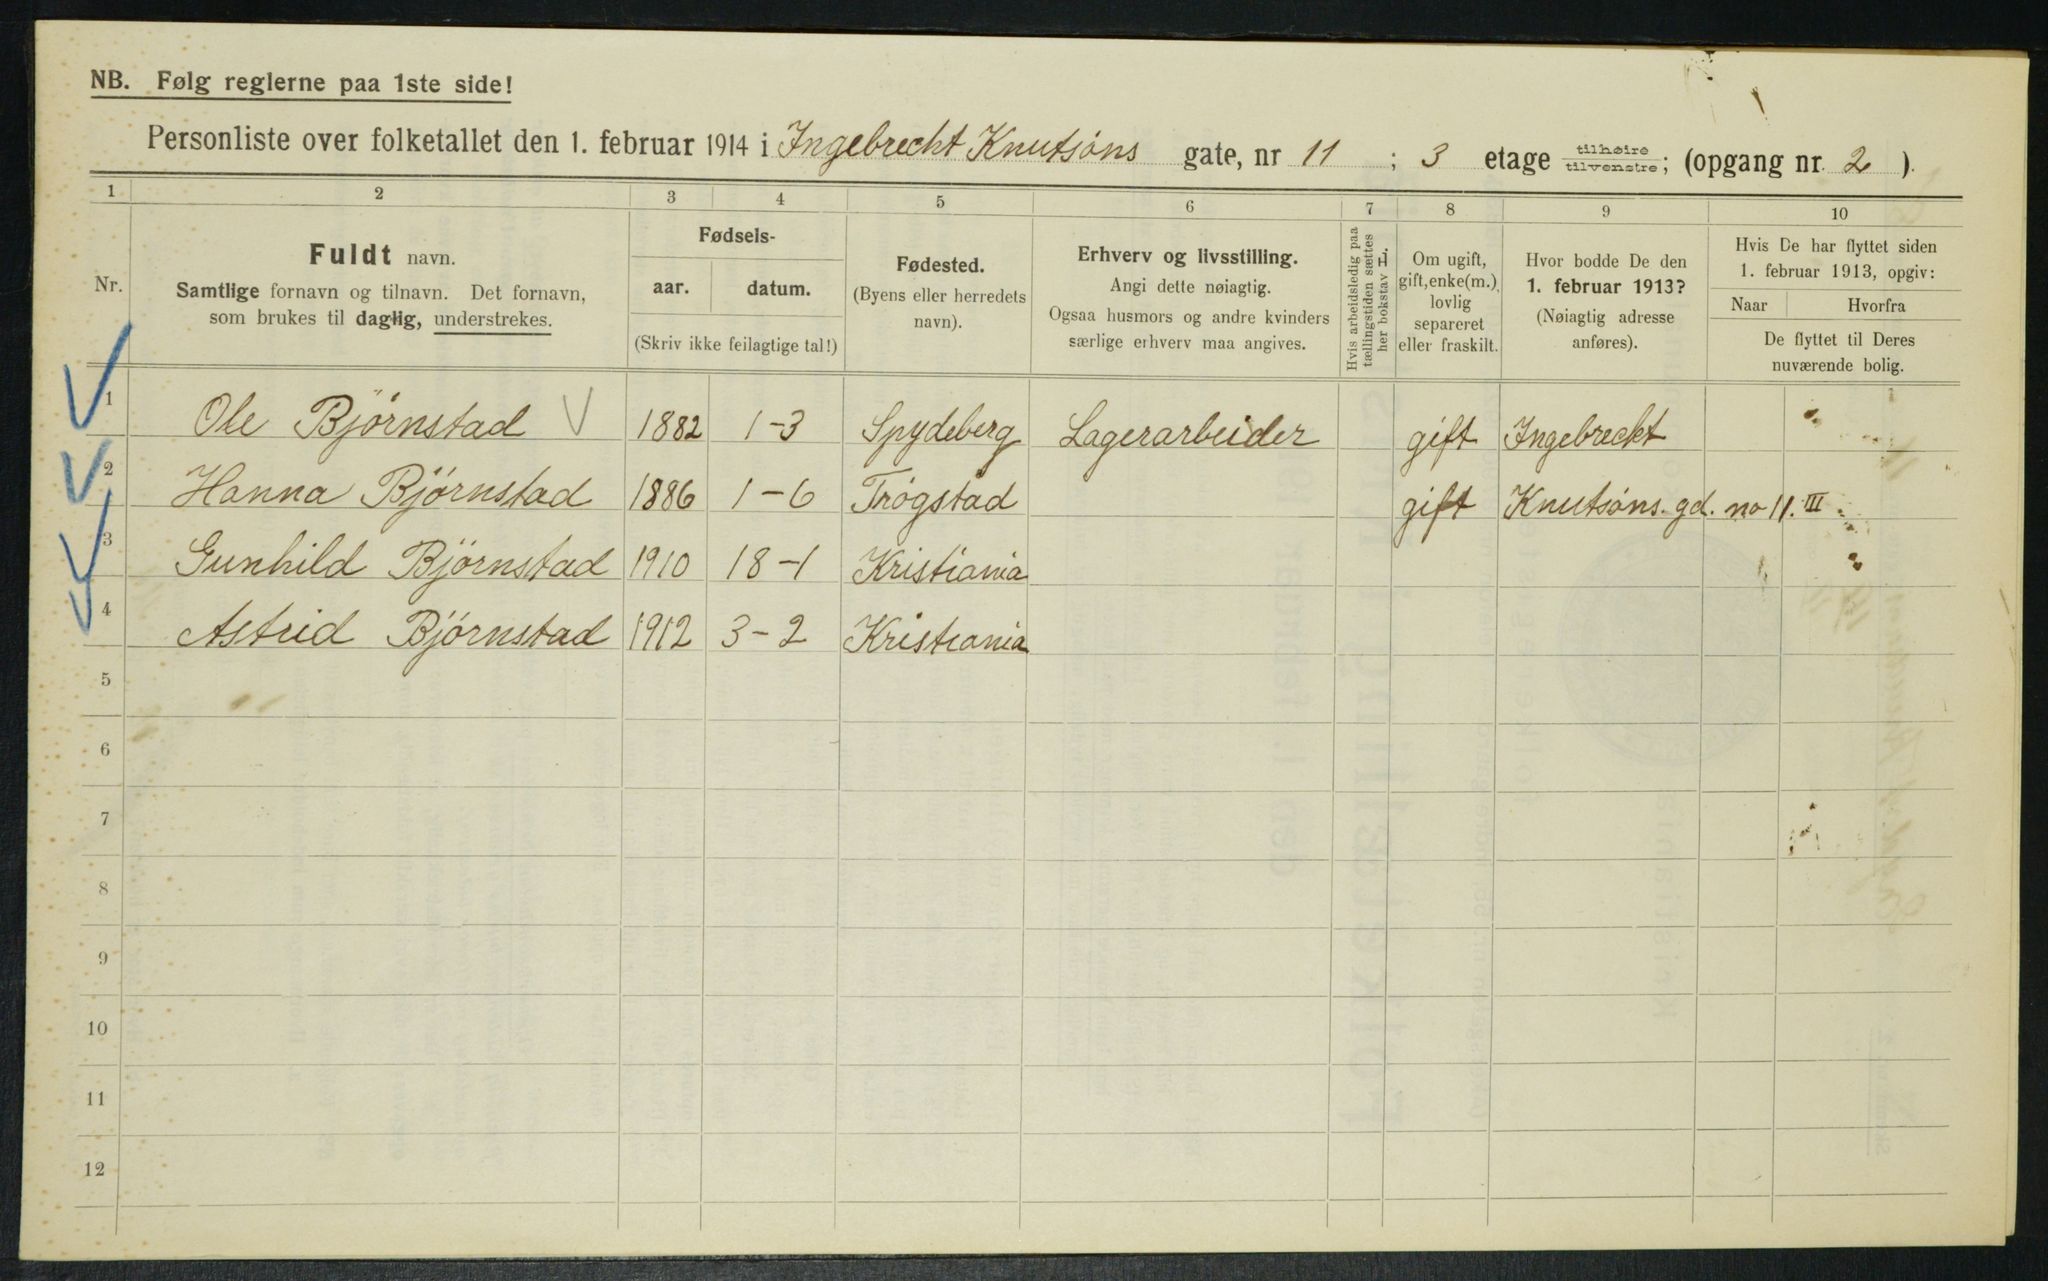 NB. Følg reglerne paa 1ste side!
Personliste over folketallet den 1. februar 1914 i Ingebrecht Knutsøns gate, nr 11 ; 3 etage tilhøire/tilvenstre; (opgang nr. 2 ).
1 2 3 4 5 6 7 8 9 10
Nr.
Fuldt navn.
Samtlige fornavn og tilnavn. Det fornavn,
som brukes til daglig, understrekes.
Fødsels-
aar. datum.
(Skriv ikke feilagtige tal!)
Fødested.
(Byens eller herredets
navn).
Erhverv og livsstilling.
Angi dette nøiagtig.
Ogsaa husmors og andre kvinders
særlige erhverv maa angives.
Hvis arbeidsledig paa
tællingstiden sættes
her bokstav L.
Om ugift,
gift, enke(m.),
lovlig
separeret
eller fraskilt.
Hvor bodde De den
1. februar 1913?
(Nøiagtig adresse
anføres).
Hvis De har flyttet siden
1. februar 1913, opgiv:
Naar Hvorfra
De flyttet til Deres
nuværende bolig.
1 Ole Bjørnstad 1882 1-3 Spydeberg Lagerarbeider gift Ingebreckt
2 Hanna Bjørnstad 1886 1-6 Trøgstad gift Knutsøns. gd. no 11. III
3 Gunhild Bjørnstad 1910 18-1 Kristiania
4 Astrid Bjørnstad 1912 3-2 Kristiania
5
6
7
8
9
10
11
12